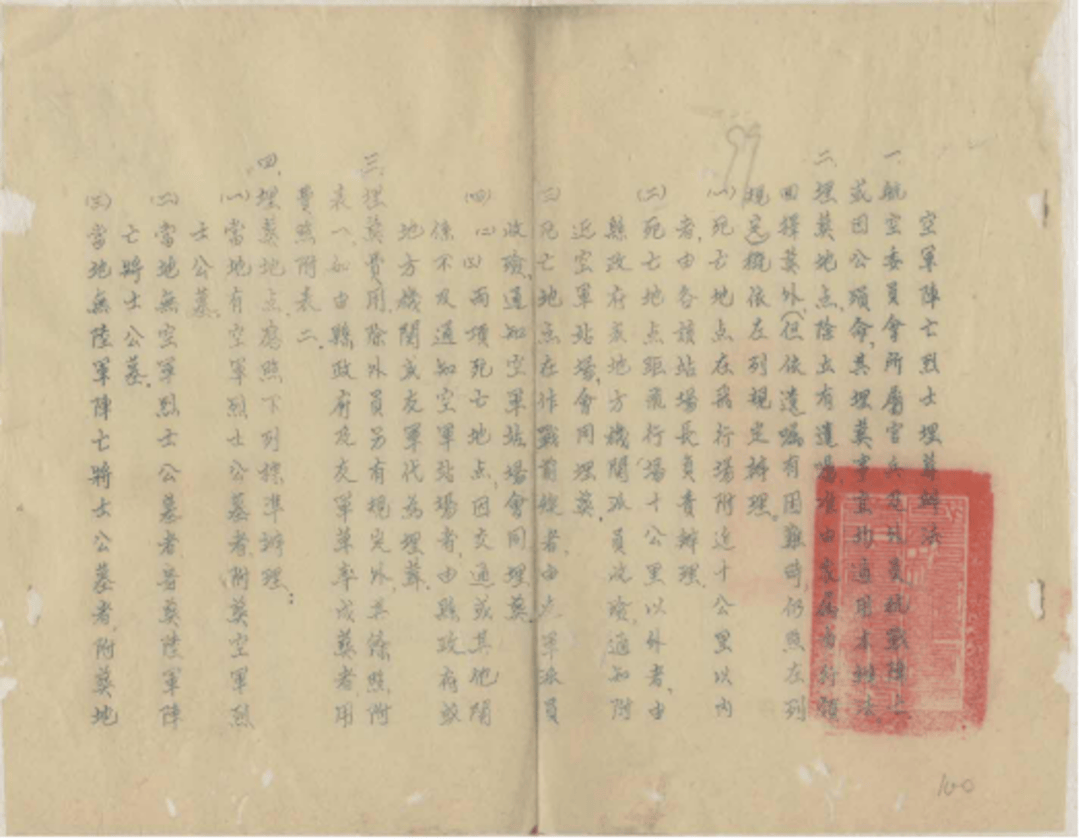 空軍陣亡烈士埋葬辦法
一、航空委員會所屬官兵及外員抗戰陣亡
或因公殞命,其埋葬事宜均適用本辦法
二、埋葬地点,除立有遺囑准由家屬自行領
回擇葬外,(但依遺囑有困難時,仍照左列
規定)概依左列規定辦理。
(一)死亡地点在飛行場附近十公里以內
者,由各該站場長負責辦理
(二)死亡地点距飛行場十公里以外者,由
縣政府或地方機關派員收殮,通知附
近空軍站場,會同埋葬。
(三)死亡地点在作戰前線者,由友軍派員
收殮,通知空軍站場會同埋葬
(四)(二)(三)兩項死亡地点,因交通或其他關
係不及通知空軍站場者,由縣政府或
地方機關或友軍代為埋葬。
三、埋葬費用,除外員另有規定外,其餘照附
表一,如由縣政府及友軍草率成葬者,用
費照附表二.
四、埋葬地点應照下列標準辦理:
(一)當地有空軍烈士公墓者,附葬空軍烈
士公墓.
(二)當地無空軍烈士公墓者,音葬陸軍陣
亡將士公墓.
(三)當地無陸軍陣亡將士公墓者,附葬地
99
100